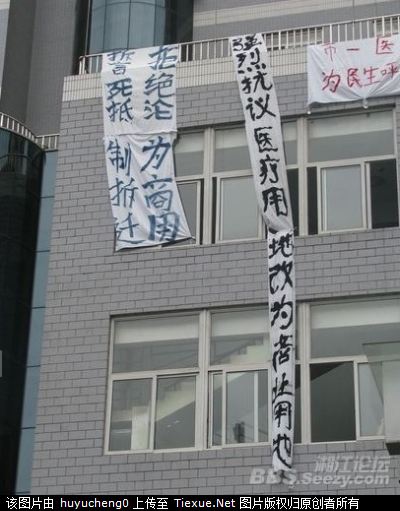 拒绝沦为商用
誓死抵制拆迁
强烈抗议医疗用地改为商业用地
市一医
为民生呼
湘江论坛
BBS.Seezy.com
该图片由 huyucheng0 上传至 Tiexue.Net 图片版权归原创者所有